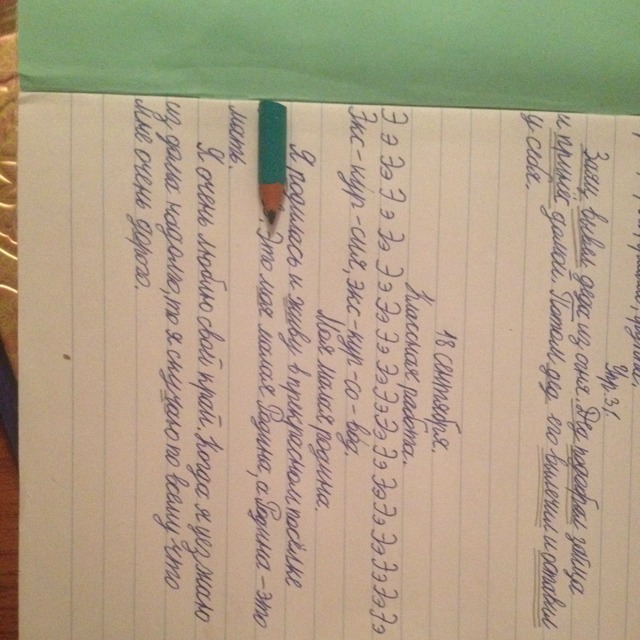 Упр. 31.
Заяц вывел деда из огня. Дед подобрал зайца
и принёс домой. Потом дед его вылечил и оставил
у себя.
18 сентября.
Классная работа.
Э э Ээ Э э Ээ Э э Ээ Э э Ээ Э э Ээ Э э Ээ
Экс-кур-сия, экс-кур-со-вод.
Моя малая родина.
Я родилась и живу в прекрасном посёлке
Это моя малая Родина, а Родина - это
мать.
Я очень люблю свой край. Когда я уезжаю
из дома надолго, то я скучаю по всему что
для очень дорого.